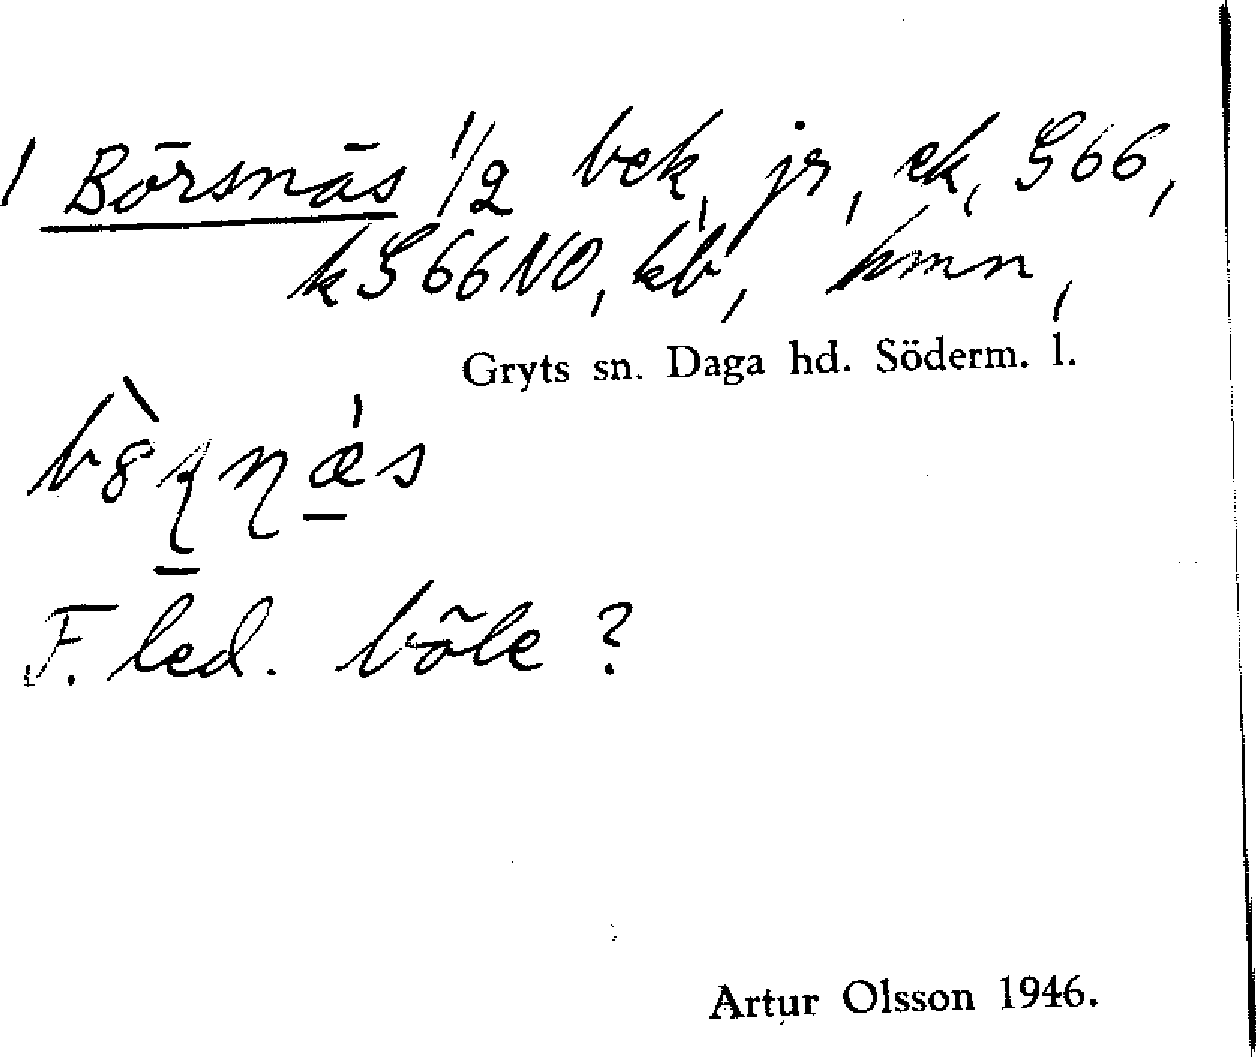 1 Börsnäs 1/2 bek, jr, ek, G66,
k G66NO, kb, hmn,
Gryts sn. Daga hd. Söderm. l.
F. led. böle ?
Artur Olsson 1946.